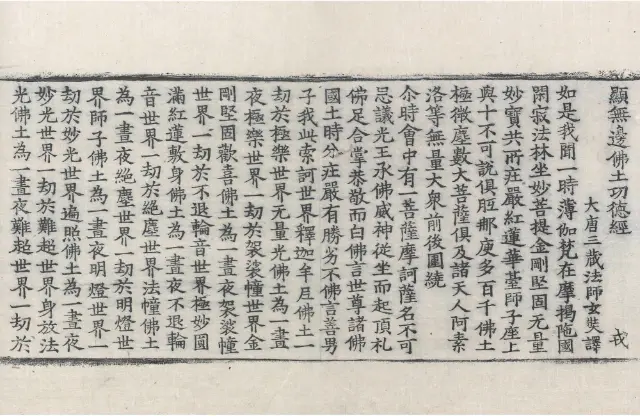 顯無邊佛土功德經
大唐三藏法師玄奘譯 戎
如是我聞一時薄伽梵在摩揭陁國
閑寂法林坐妙菩提金剛堅固无量
妙寶共所莊嚴紅蓮華臺師子座上
與十不可說俱胝那庾多百千佛土
極微塵數大菩薩俱及諸天人阿素
洛等無量大衆前後圍繞
尒時會中有一菩薩摩訶薩名不可
思議光王承佛威神從坐而起頂礼
佛足合掌恭敬而白佛言世尊諸佛
國土時分莊嚴有勝劣不佛言善男
子我此索訶世界釋迦牟尼佛土一
劫於極樂世界无量光佛土為一晝
夜極樂世界一劫於袈裟幢世界金
剛堅固歡喜佛土為一晝夜袈裟幢
世界一劫於不退輪音世界極妙圓
滿紅蓮敷身佛土為一晝夜不退輪
音世界一劫於絕塵世界法幢佛土
為一晝夜絕塵世界一劫於明燈世
界師子佛土為一晝夜明燈世界一
劫於妙光世界遍照佛土為一晝夜
妙光世界一劫於難超世界身放法
光佛土為一晝夜難超世界一劫於